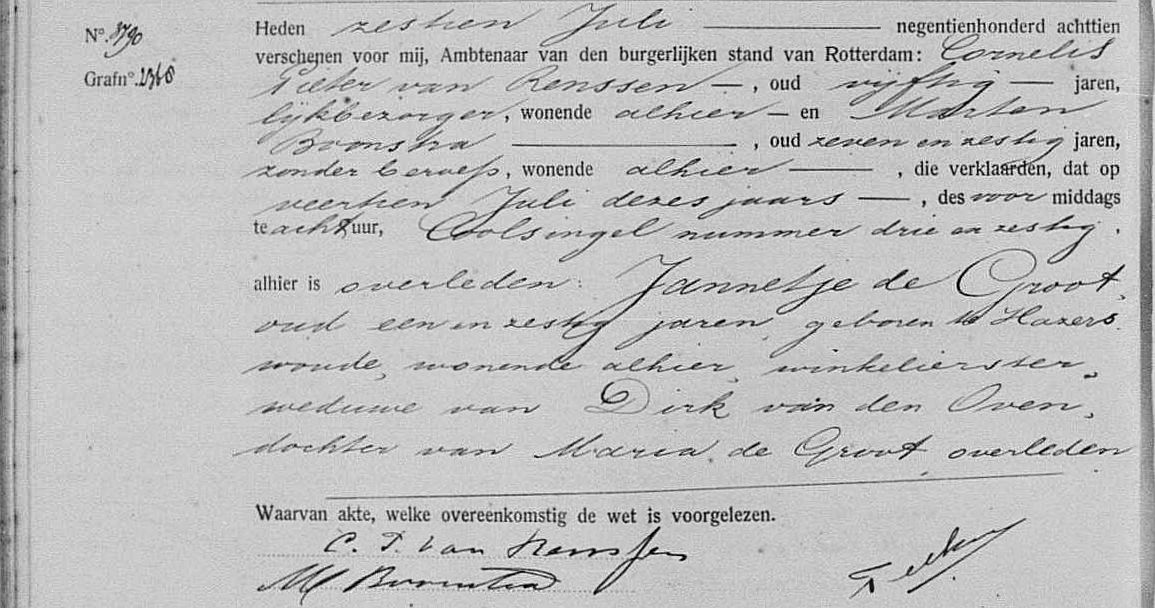 Heden zestien Juli negentienhonderd achttien
Nº. 3790
verschenen voor mij, Ambtenaar van den burgerlijken stand van Rotterdam: Cornelis
Grafnº. 2368
Pieter van Renssen, oud vijftig jaren,
lijkbezorger, wonende alhier en Marten
Boonstra, oud zeven en zestig jaren,
zonder beroep, wonende alhier, die verklaarden, dat op
veertien Juli dezes jaars, des voor middags
te acht uur, Coolsingel nummer drie en zestig.
alhier is overleden: Jannetje de Groot,
oud een en zestig jaren, geboren te Hazers
woude, wonende alhier, winkelierster,
weduwe van Dirk van den Oven,
dochter van Maria de Groot, overleden
Waarvan akte, welke overeenkomstig de wet is voorgelezen.
C. P. van Renssen
M Boonstra